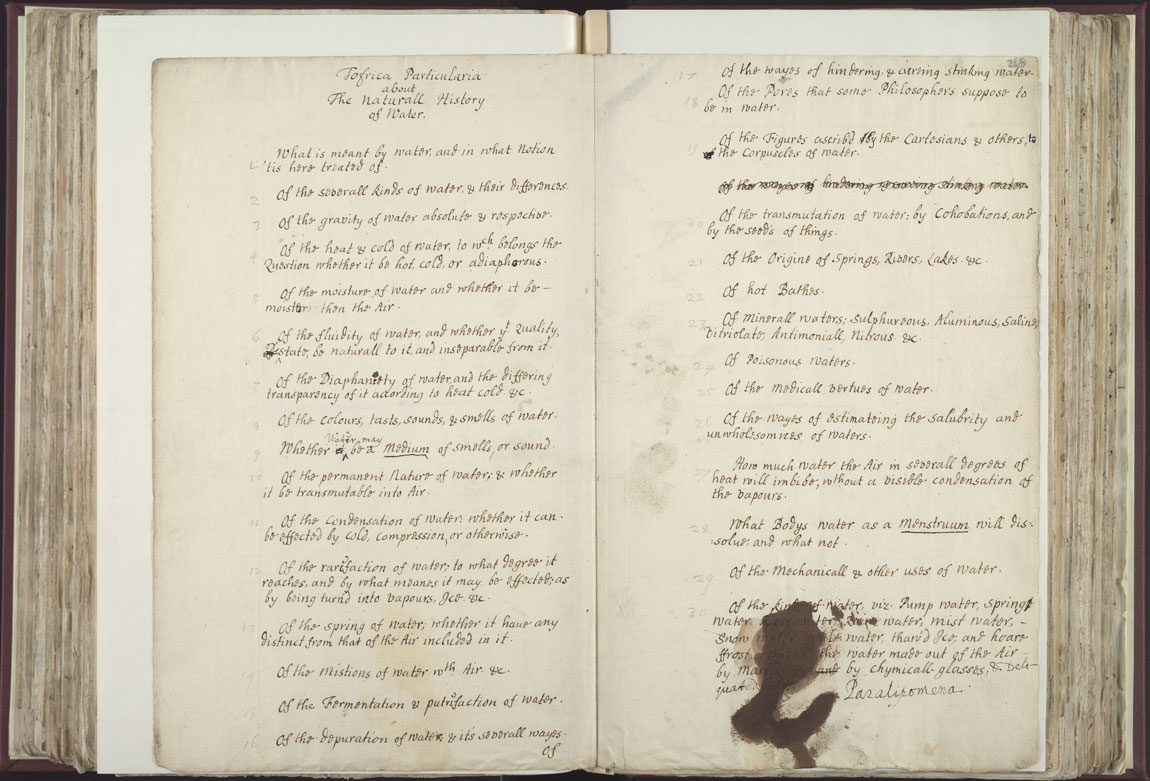 Topica Particularia
about
The Naturall History
of Water.
1 What is meant by water, and in what Notion
'tis here treated of.
2 Of the severall kinds of water, & their differences.
3 Of the gravity of water absolute & respective.
4 Of the heat & cold of water, to wch belongs the
Question whether it be hot, cold, or adiaphorous.
5 Of the moisture of water and whether it be –
moister then the Air.
6 Of the fluidity of water, and whether yt Quality,
or state, be naturall to it, and inseparable from it.
7 Of the Diaphaniety of water, and the differing
transparency of it according to heat cold &c.
Of the colours, tasts, sounds, & smells of water.
9 Whether Water may be a Medium of smells, or sound.
10 Of the permanent Nature of water; & whether
it be transmutable into Air.
11 Of the condensation of water: whether it can-
be effected by cold, compression, or otherwise.
12 Of the rarifaction of water; to what degree it
reaches, and by what meanes it may be effected; as
by being turn'd into vapours, Ice &c.
13 Of the spring of water; whether it have any
distinct from that of the Air included in it.
Of the Mistions of water wth Air &c.
15 Of the Fermentation & putrifaction of water.
16 Of the depuration of water & its severall wayes.
Of
268
17 Of the wayes of hindering, & cureing stinking water.
18 Of the Pores that some Philosophers suppose to
be in water.
19 Of the Figures ascribd by the Cartesians & others, to
the Corpuscles of water.
Of the wayes of hindering & cureing stinking water.
20 Of the transmutation of water: by Cohobations, and
by the seeds of things.
21 Of the Origine of Springs, Rivers, Lakes &c.
22 Of hot Bathes.
23 Of Minerall waters; Sulphureous, Aluminous, Saline,
Vitriolate, Antimoniall, Nitrous &c.
24 Of Poisonous waters.
25 Of the Medicall vertues of water.
26 Of the wayes of estimateing the salubrity and
unwholesomnes of waters.
27 How much water the Air in severall degrees of
heat will imbibe, without a visible condensation of
the vapours.
28 What Bodys water as a Menstruum will dis-
:solve; and what not.
29 Of the Mechanicall & other uses of water.
30 Of the kinds of water, viz. Pump water, spring
water, River water, Rain water, mist water, –
Snow water, water, thaw'd Ice, and hoare
ffrost, the water, made out of the Air –
by and by Chymicall glasses, & Deli-
Paralipomena.